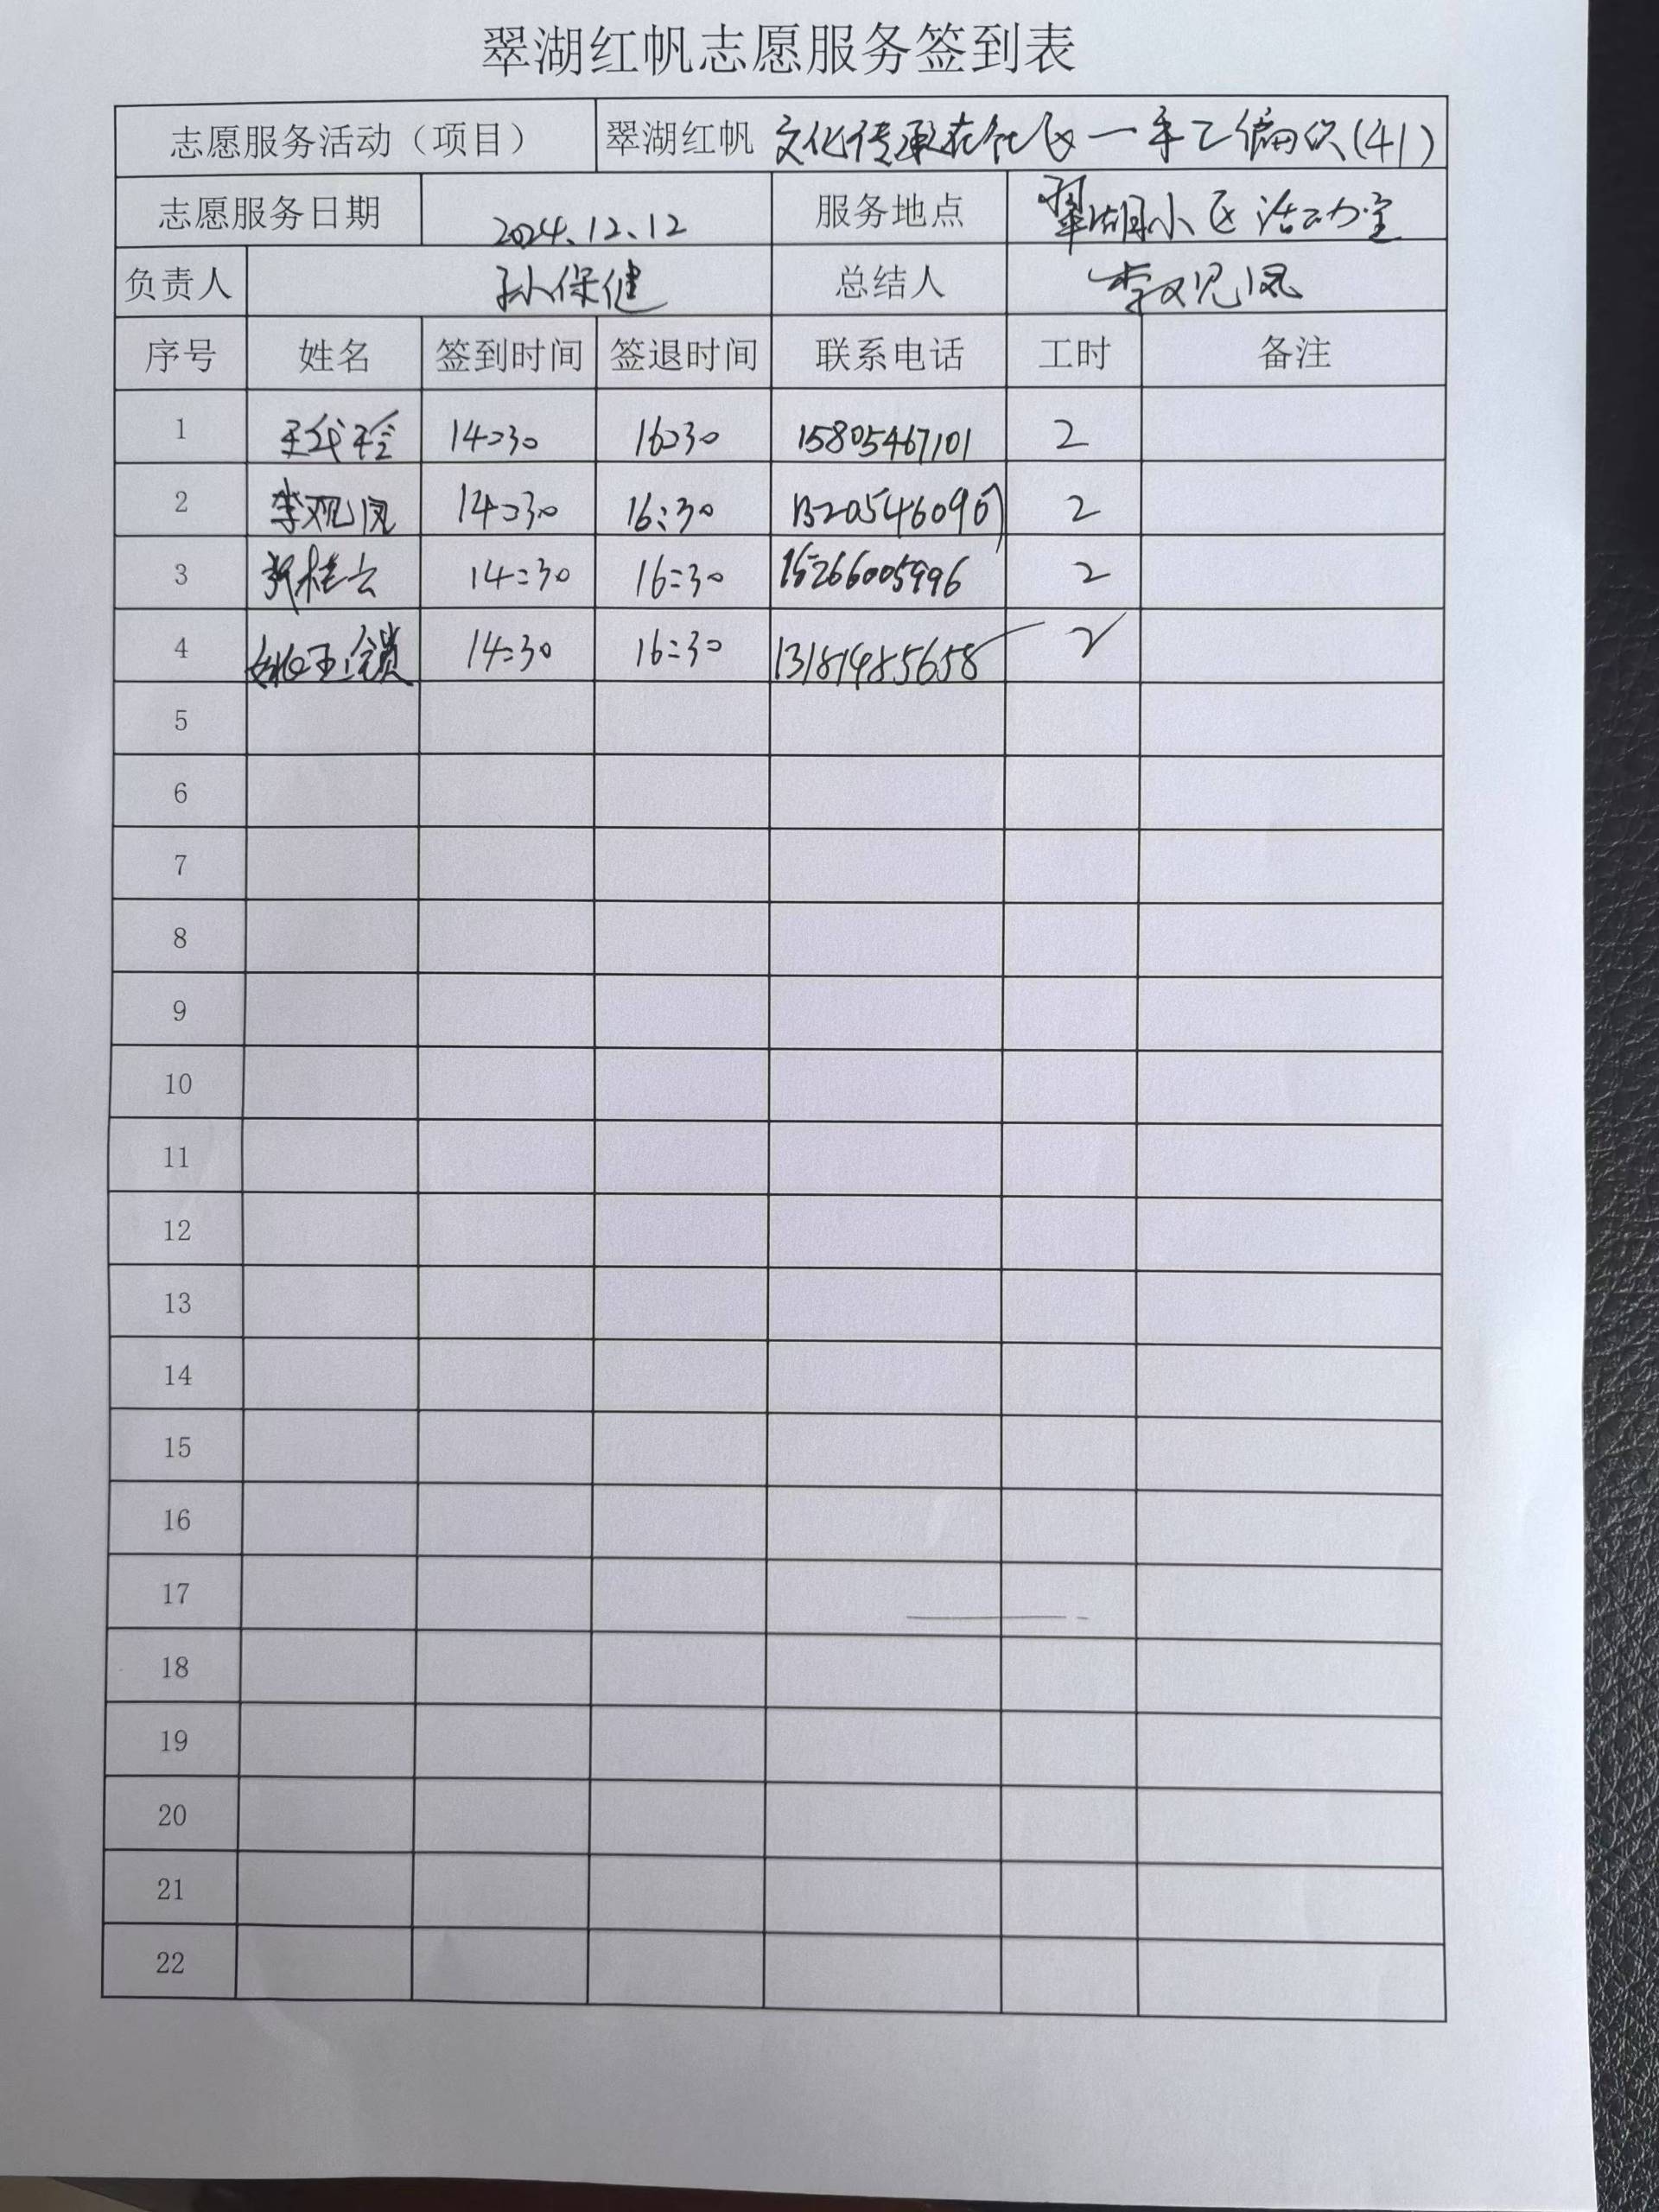 翠湖红帆志愿服务签到表
志愿服务活动（项目） 翠湖红帆 文化传承在社区一手工编织(41)
志愿服务日期 2024.12.12 服务地点 翠湖小区活动室
负责人 孙保健 总结人 李观凤
序号 姓名 签到时间 签退时间 联系电话 工时 备注
1 14:30 16:30 15805467101 2
2 李观凤 14:30 16:30 2
3 郭桂云 14:30 16:30 15266005996 2
4 姚玉锁 14:30 16:30 13181485658 2
5
6
7
8
9
10
11
12
13
14
15
16
17
18
19
20
21
22